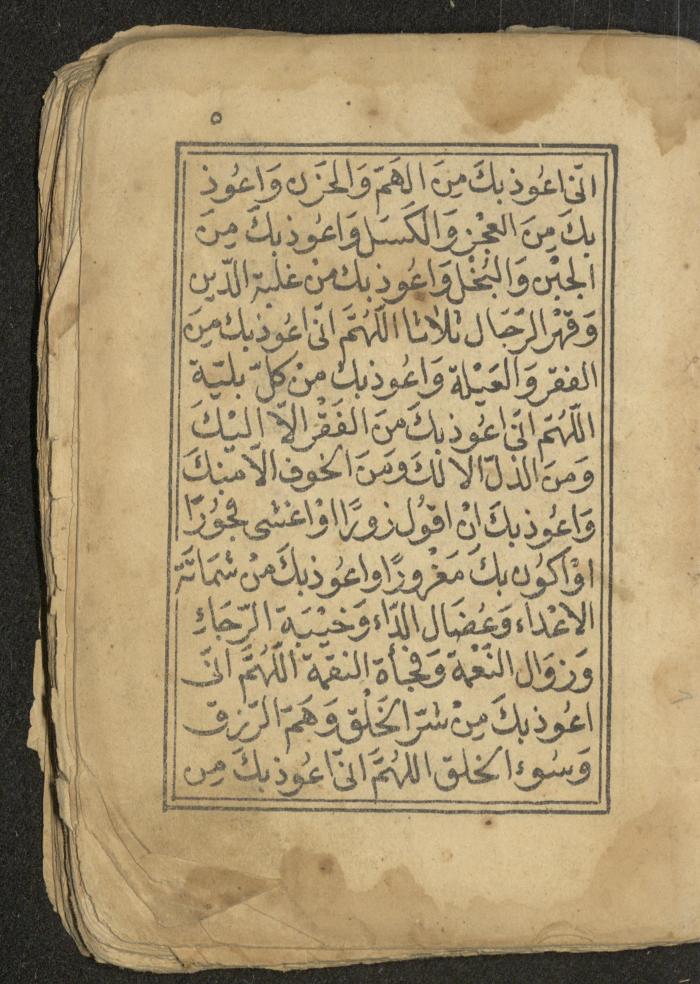 ٥
انّى اعُوذ بكَ مِنَ الهَمّ وَالحَزَن وَاعُوذ
بكَ مِنَ العجْزِ وَالكَسَل وَاعُوذ بكَ مِنَ
الجبْن وَالبُخْل وَاعُوذ بك منْ غلبة الدّين
وَقهْر الرّجَال ثلاثا اللّهُمَّ انّى اعُوذ بك مِنَ
الفقر وَالعَيْلة وَاعُوذ بك منْ كلّ بليّة
اللّهُمّ انّى اعُوذ بكَ منَ الفَقْر الاّ اليْكَ
وَمنَ الذلّ الا لكَ وَمنَ الخوف الاّ منكَ
وَاعُوذ بكَ انْ اقولُ زورًا اوْ اغشى فجُورًا
اوْ اكُون بكَ مَغْرورًا واعُوذ بكَ منْ شمَاتَة
الاعْداء وَعُضَال الدّاء وَخيْبَة الرّجَاءِ
وَزوَال النّعْمة وَفجأة النقمة اللّهُمَّ انّى
اعُوذ بكَ مِنْ شرّ الخَلْق وَهَمّ الرّزق
وَسُوء الخلق اللهُمَّ انّى اعُوذ بكَ مِن